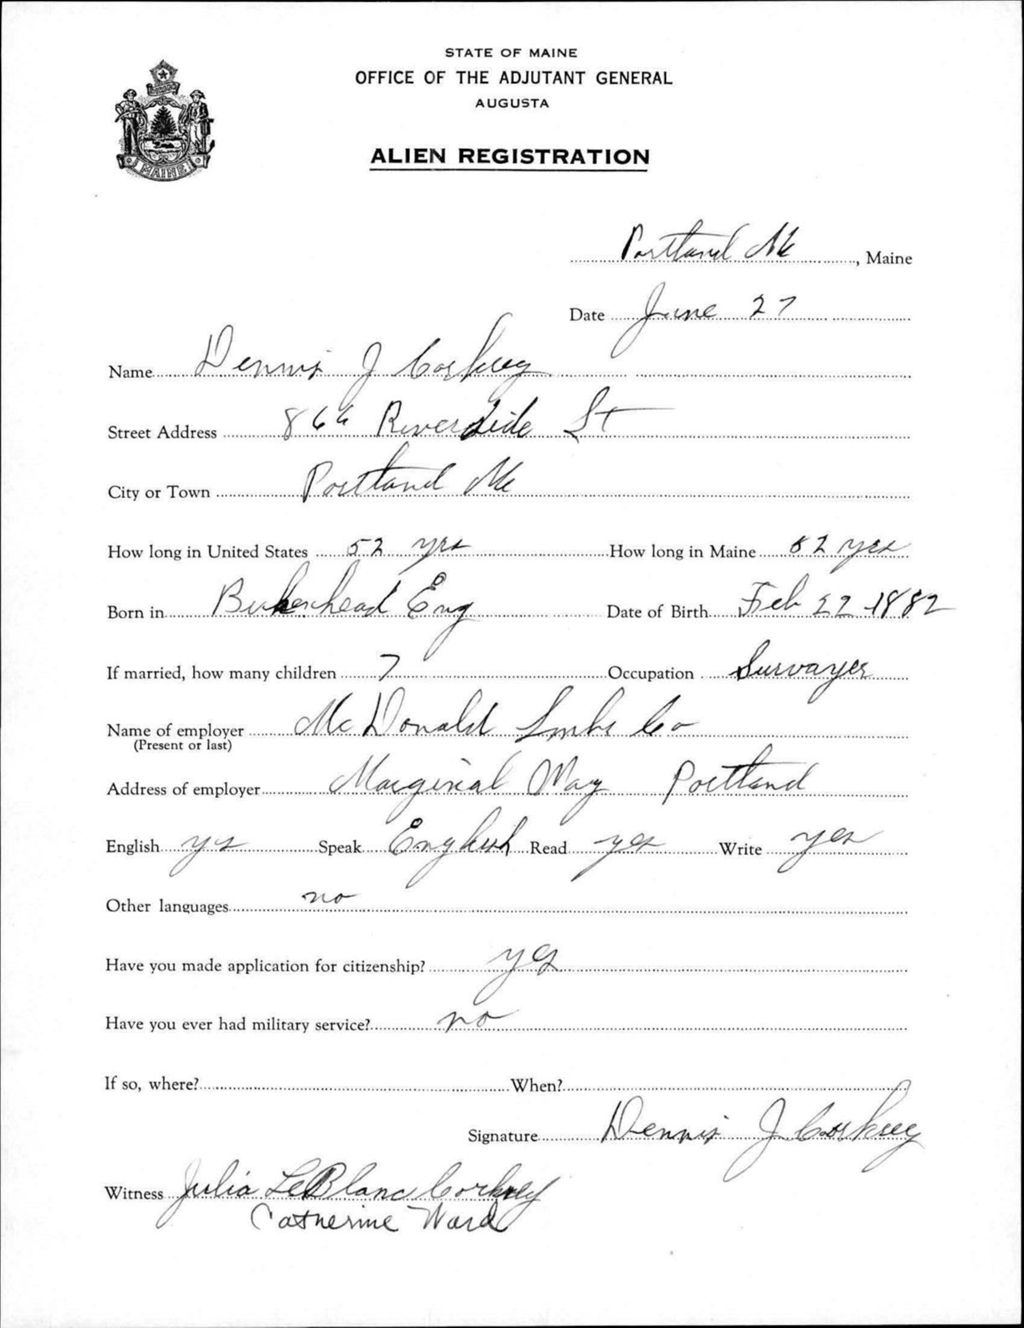 STATE OF MAINE
OFFICE OF THE ADJUTANT GENERAL
AUGUSTA
ALIEN REGISTRATION
MAINE
Portland Me, Maine
Date June 27
Name Dennis J Corkrey
Street Address 866 Riverside St
City or Town Portland Me
How long in United States 52 yrs How long in Maine 52 yrs
Born in Birkenhead Eng Date of Birth Feb 22 1882
If married, how many children 7 Occupation Survayer
Name of employer Mc Donald Co
(Present or last)
Address of employer Marginal Way Portland
English ys Speak English Read yes Write yes
Other languages no
Have you made application for citizenship? yes
Have you ever had military service? no
If so, where? When?
Signature Dennis J Corkrey
Witness Julia LeBlanc Corkrey
Catherine Ward